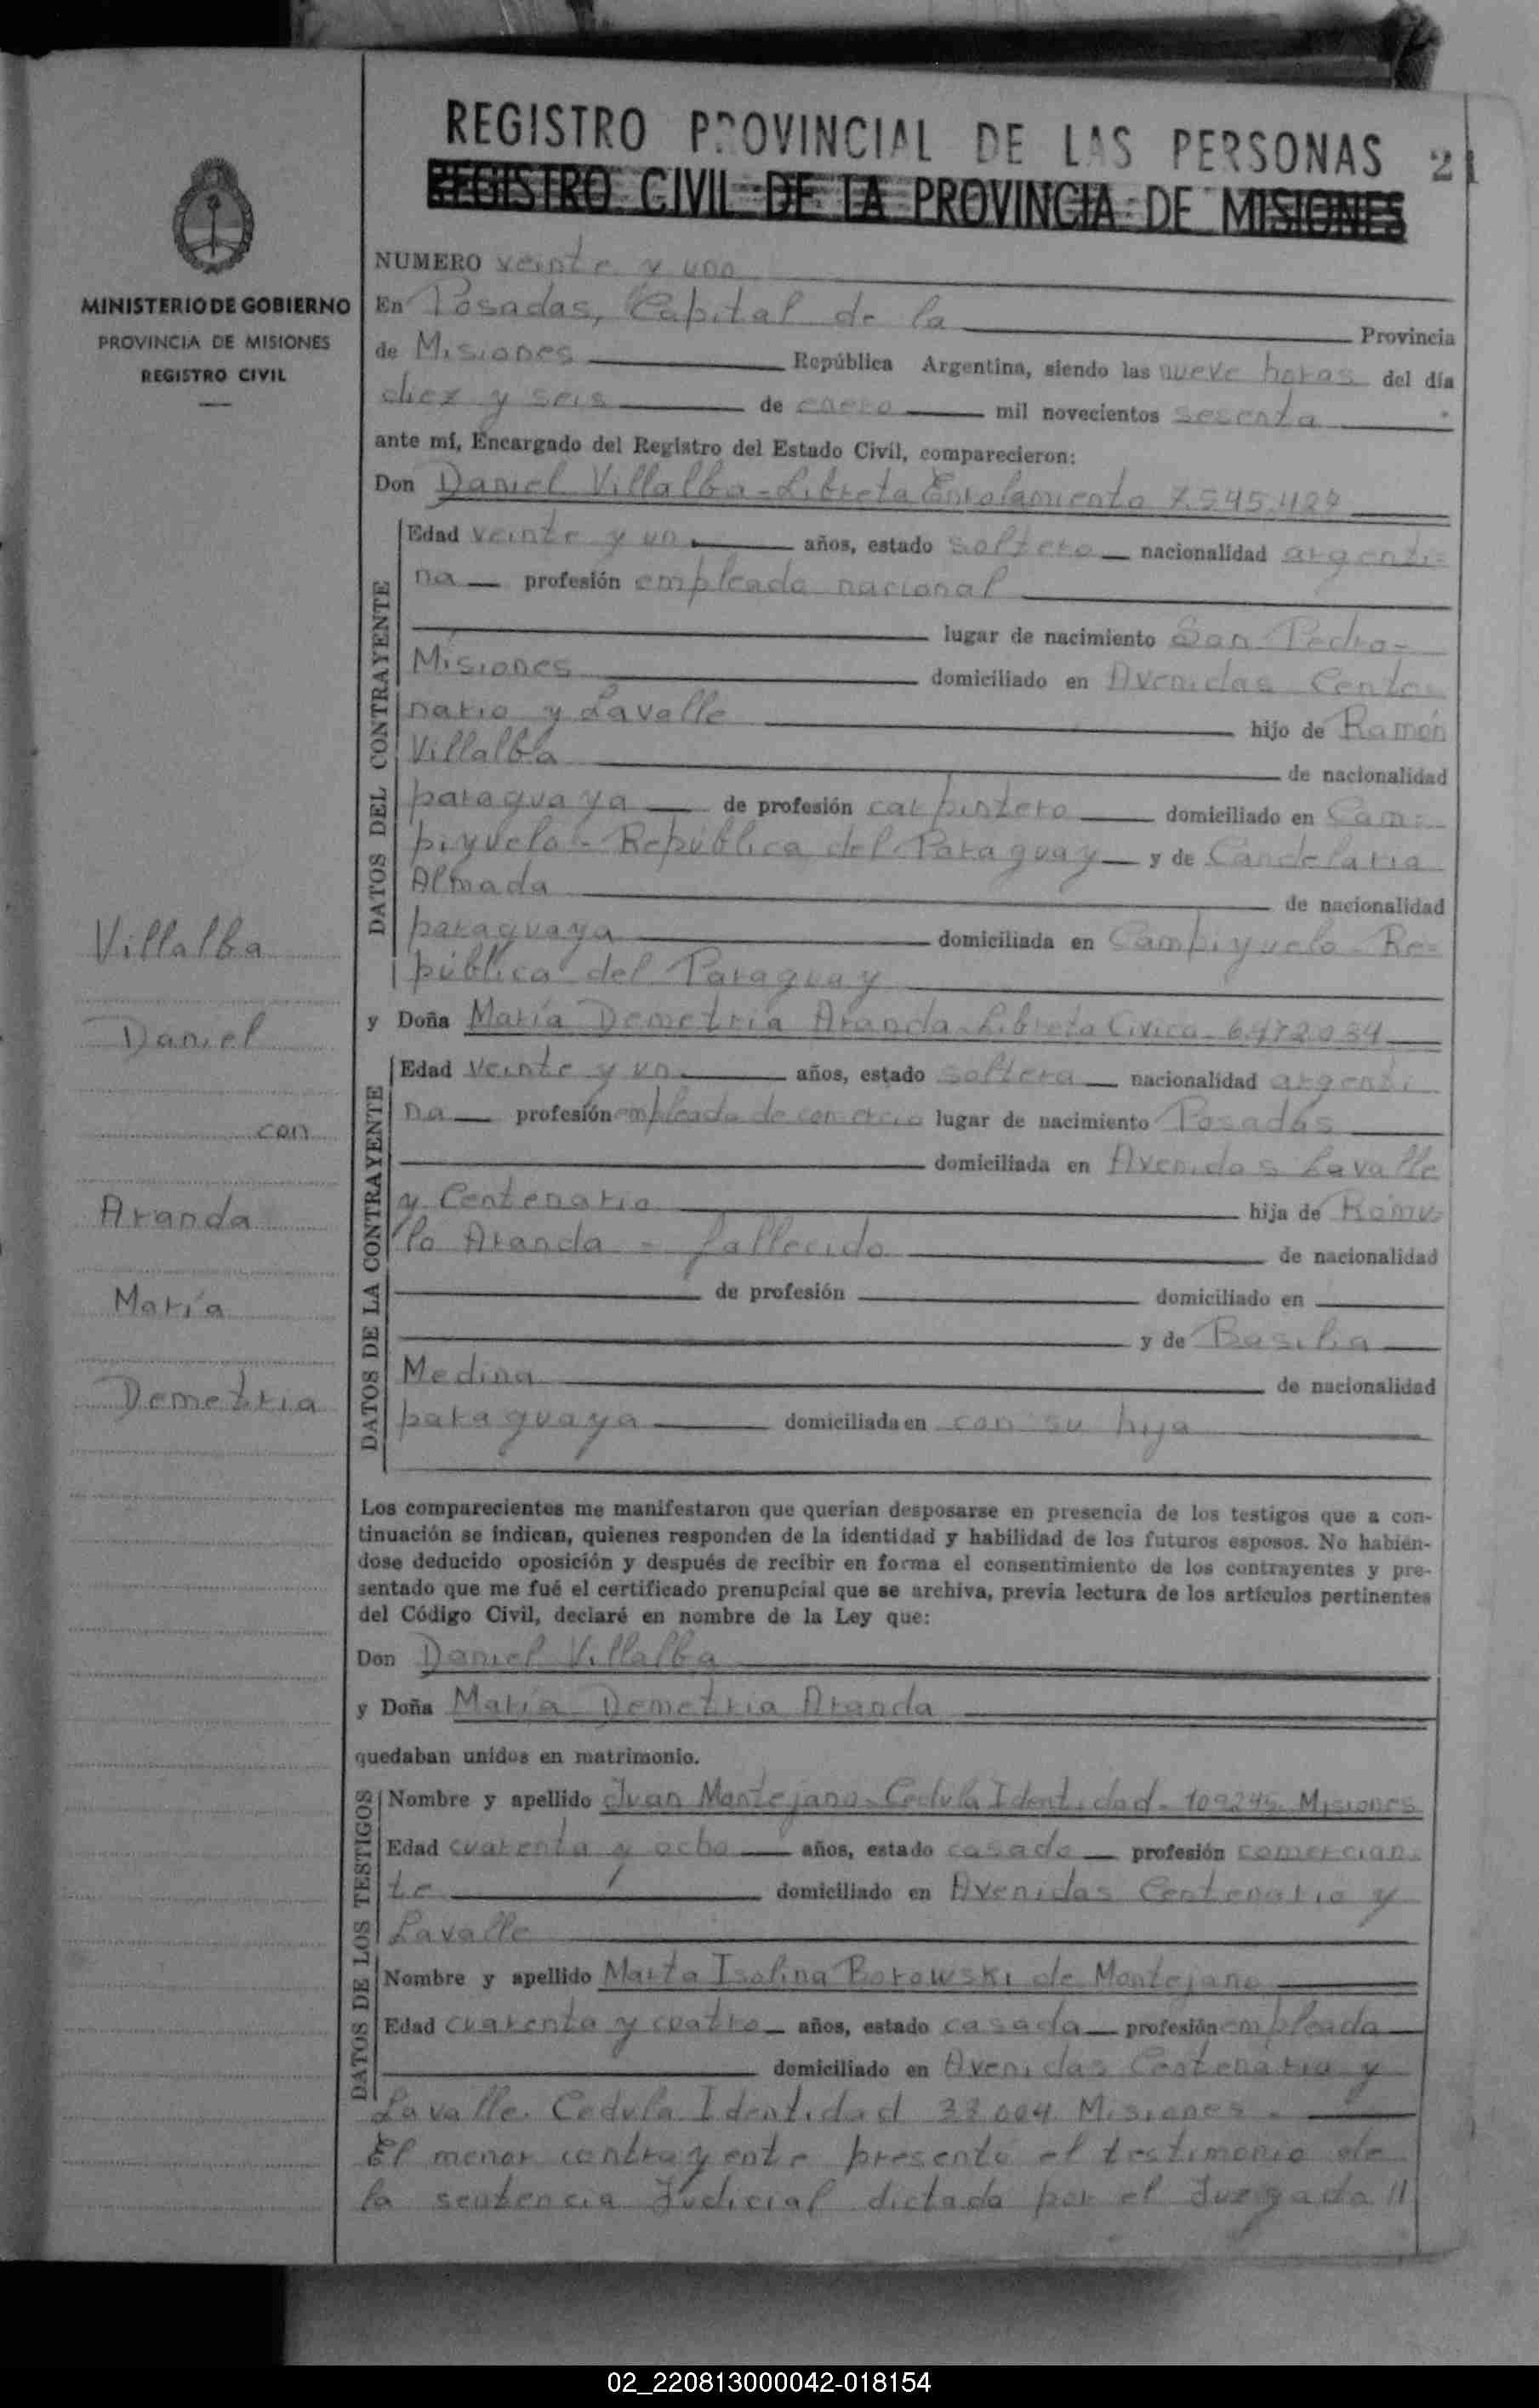 REGISTRO PROVINCIAL DE LAS PERSONAS 21
REGISTRO CIVIL DE LA PROVINCIA DE MISIONES
MINISTERIO DE GOBIERNO
PROVINCIA DE MISIONES
REGISTRO CIVIL
Villalba
Daniel
con
Aranda
María
Demetria
NUMERO veinte y uno
En Posadas, Capital de la Provincia
de Misiones República Argentina, siendo las nueve horas del día
diez y seis de enero mil novecientos sesenta
ante mí, Encargado del Registro del Estado Civil, comparecieron:
Don Daniel Villalba - Libreta Enrolamiento
DATOS DEL CONTRAYENTE
Edad veinte y un años, estado soltero nacionalidad argenti=
na profesión empleado nacional
lugar de nacimiento San Pedro-
Misiones domiciliado en Avenidas Cente=
nario y Lavalle hijo de Ramón
Villalba de nacionalidad
paraguaya de profesión carpintero domiciliado en Cam=
piyuelo - República del Paraguay y de Candelaria
Almada de nacionalidad
paraguaya domiciliada en Campiyuelo - Re=
pública del Paraguay
y Doña María Demetria Aranda - Libreta Cívica - 6.472.034
DATOS DE LA CONTRAYENTE
Edad veinte y un años, estado soltera nacionalidad argenti
na profesión empleada de comercio lugar de nacimiento Posadas
domiciliada en Avenidas Lavalle
y Centenario hija de Rómu=
lo Aranda - fallecido de nacionalidad
de profesión domiciliado en
y de Basilia
Medina de nacionalidad
paraguaya domiciliada en con su hija
Los comparecientes me manifestaron que querían desposarse en presencia de los testigos que a con-
tinuación se indican, quienes responden de la identidad y habilidad de los futuros esposos. No habién-
dose deducido oposición y después de recibir en forma el consentimiento de los contrayentes y pre-
sentado que me fué el certificado prenupcial que se archiva, previa lectura de los artículos pertinentes
del Código Civil, declaré en nombre de la Ley que:
Don Daniel Villalba
y Doña María Demetria Aranda
quedaban unidos en matrimonio.
DATOS DE LOS TESTIGOS
Nombre y apellido Juan Montejano - Cedula Identidad - 109245 Misiones
Edad cuarenta y ocho años, estado casado profesión comercian=
te domiciliado en Avenidas Centenario y
Lavalle
Nombre y apellido Marta Isolina Borowski de Montejano
Edad cuarenta y cuatro años, estado casada profesión empleada
domiciliado en Avenidas Centenario y
Lavalle. Cedula Identidad Misiones.
El menor contrayente presentó el testimonio de
la sentencia Judicial dictada por el Juzgado //
02_220813000042-018154